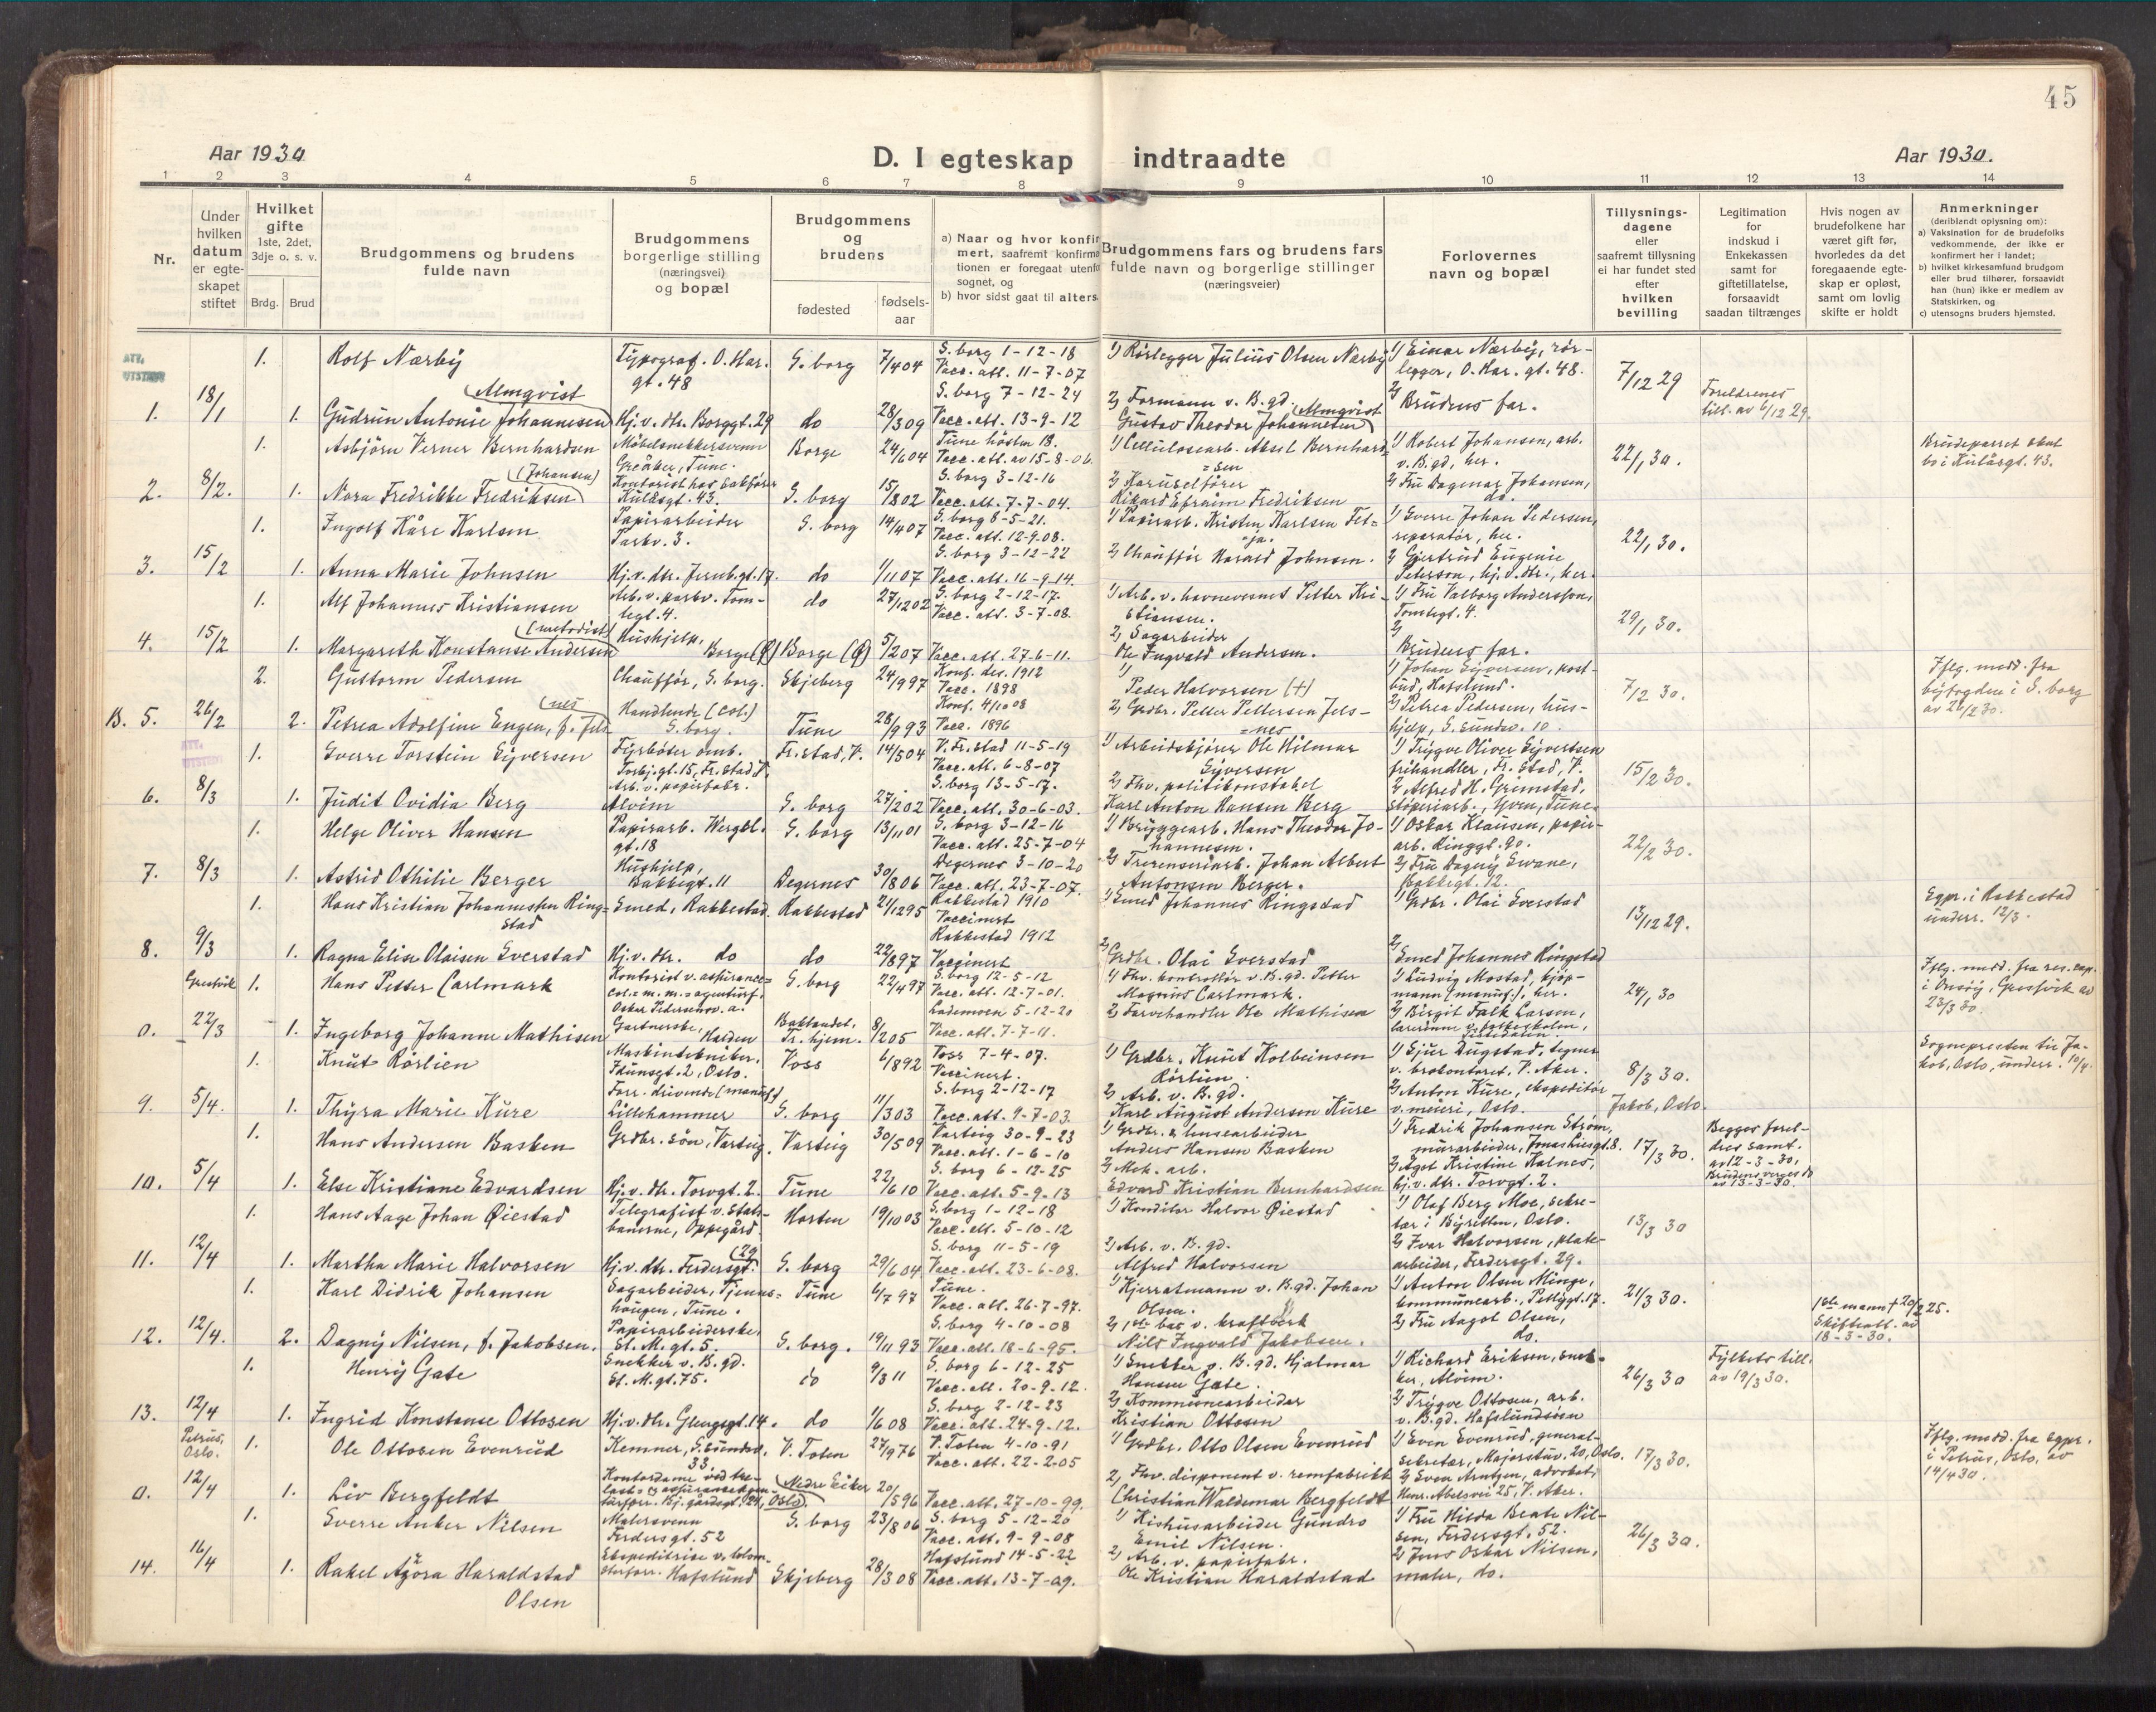 45
Aar 1930
D. I egteskap indtraadte
Aar 1930.
1 2 3 4 5 6 7 8 9 10 11 12 13 14
Nr.
Under hvilken datum er egteskapet stiftet
Hvilket gifte
1ste, 2det, 3dje o. s. v.
Brdg. Brud
Brudgommens og brudens fulde navn
Brudgommens borgerlige stilling
(næringsvei)
og bopæl
Brudgommens og brudens
fødested
fødsels-aar
a) Naar og hvor konfir
mert, saafremt konfirma
tionen er foregaat utenfo
sognet, og
b) hvor sidst gaat til alters.
Brudgommens fars og brudens fars
fulde navn og borgerlige stillinger
(næringsveier)
Forlovernes
navn og bopæl
Tillysnings-
dagene
eller
saafremt tillysning
ei har fundet sted
efter
hvilken
bevilling
Legitimation
for
indskud i
Enkekassen
samt for
giftetillatelse,
forsaavidt
saadan tiltrænges
Hvis nogen av
brudefolkene har
været gift før,
hvorledes da det
foregaaende egte-
skap er opløst,
samt om lovlig
skifte er holdt
Anmerkninger
(deriblandt oplysning om):
a) Vaksination for de brudefolks
vedkommende, der ikke er
konfirmert her i landet;
b) hvilket kirkesamfund brudgom
eller brud tilhører, forsaavidt
han (hun) ikke er medlem av
Statskirken, og
c) utensogns bruders hjemsted.
ATT. UTSTEDT
1. Rolf Nærby
Typograf. O. Har. gt. 48
S. borg 7/4 04
S. borg 1-12-18
Vacc. att. 11-7-07
1) Rørlegger Julius Olsen Nærby
1) Einar Nærby, rør-
legger, O. Har. gt. 48.
7/12 29
Foreldrenes
till. av 6/12 29.
1. 18/1 1. Gudrun Antonie Johannesen (Almqvist)
Hj. v. dtr. Borggt. 29
do 28/3 09
S. borg 7-12-24
Vacc. att. 13-9-12
2) Formann v. B. gd. (Almqvist
Gustav Theodor Johannesen)
2) Brudens far.
1. Asbjørn Verner Bernhardsen
Møbelsnekkersvenn
Greåker, Tune.
Borge 24/6 04
Tune høsten 18.
Vacc. att. av 15-8-06.
1) Cellulosearb. Aksel Bernhard=
sen
1) Robert Johansen, arb.
v. B. gd, her.
22/1 30.
Brudeparret skal
bo i Kulåsgt. 43.
2. 8/2. 1. Nora Fredrikke Fredriksen (Johansen)
Kontorist hos sakfører
Kulåsgt. 43.
S. borg 15/8 02
S. borg 3-12-16
Vacc. att. 7-7-04.
2) Karuselfører
Rikard Efraim Fredriksen
2) Fru Dagmar Johansen,
do.
1. Ingolf Kåre Karlsen
Papirarbeider
Parkv. 3.
S. borg 14/4 07
S. borg 8-5-21.
Vacc. att. 12-9-08.
1) Papirarb. Kristen Karlsen Fet=
ja.
1) Sverre Johan Pedersen,
reparatør, her.
22/1 30.
3. 15/2 1. Anna Marie Johnsen
Hj. v. dtr. Jernb. gt. 17.
do 1/11 07
S. borg 3-12-22
Vacc. att. 16-9-14.
2) Chauffør Harald Johnsen.
2) Gjertrud Eugenie
Peterson, hj. v. dtr., her.
1. Alf Johannes Kristiansen
Arb. v. parkv. Tom-
tegt. 4.
do 27/12 02
S. borg 2-12-17.
Vacc. att. 3-7-08.
1) Arb. v. havnevesnet Petter Kri-
stiansen.
1) Fru Valborg Andersson,
Tomtegt. 4.
29/1 30.
4. 15/2 1. Margareth Konstanse Andersen (metodist)
Hushjelp.
Borge (Ø)
Borge (Ø) 5/2 07
Vacc. att. 27-6-11.
2) Sagarbeider
Ole Ingvald Andersen.
2) Brudens far.
2. Gustorm Pedersen
Chauffør, S. borg.
Skjeberg 24/9 97
Konf. des. 1912
Vacc. 1898
1) Peder Halvorsen (†)
1) Johan Syversen, post-
bud, Hafslund.
7/2 30.
Iflg. medd. fra
byfogden i S. borg
av 26/2 30.
B. 5. 26/2 2. Petrea Adolfine Engen, f. Jels (nes
Handlende (col.)
S. borg.
Tune 28/9 93
Konf. 4/10 08
Vacc. 1896
2) Grdbr. Petter Pettersen Jels-
nes
2) Petrea Pedersen, hus-
hjelp, S. sundv. 10.
1. Sverre Torstein Syversen
Fyrbøter omb.
Torbj. gt. 15, Fr. stad V.
Fr. stad, V. 14/5 04
V. Fr. stad 11-5-19
Vacc. att. 6-8-07
1) Arbeidskjører Ole Hilmar
Syversen
1) Trygve Oliver Syvertsen
frihandler, Fr. stad, V.
15/2 30.
6. 8/3 1. Judit Ovidia Berg
Arb. v. papirfabr.
Alvim
S. borg 27/2 02
S. borg 13-5-17.
Vacc. att. 30-6-03.
2) Fhv. politikonstabel
Karl Anton Hansen Berg
2) Alfred H. Grimstad,
støperiarb., Yven, Tune.
1. Helge Oliver Hansen
Papirarb. Wergel.
gt. 18
S. borg 13/11 01
S. borg 3-12-16
Vacc. att. 25-7-04
1) Bryggearb. Hans Theodor Jo-
hannesen.
1) Oskar Klausen, papir-
arb. Ringgt. 90.
22/2 30.
7. 8/3 1. Astrid Othilie Berger
Hushjelp,
Bakkegt. 11
Degernes 30/8 06
Degernes 3-10-20
Vacc. att. 23-7-07.
2) Tresenseriarb. Johan Albert
Antonsen Berger.
2) Fru Dagny Svane,
Bakkegt. 12.
1. Hans Kristian Johannessen Ring=
stad
Smed, Rakkestad
Rakkestad 21/12 95
Rakkestad 1910
Vaccinert
1) Smed Johannes Ringstad
1) Grdbr. Olai Sverstad
13/12 29.
Sgpr. i Rakkestad
underr. 12/3.
8. 9/3 1. Ragna Elise Olaisen Sverstad
Hj. v. dtr. do
do 22/8 97
Rakkestad 1912
Vaccinert
2) Grdbr. Olai Sverstad
2) Smed Johannes Ringstad
Gressvik 1. Hans Petter Carlmark
Kontorist v. assurance=
col.= m. m. = agenturf.
Oskar Petersen o. a.
S. borg 22/4 97
S. borg 12-5-12
Vacc. att. 12-7-01.
1) Fhv. kontrollør v. B. gd. Petter
Magnus Carlmark.
1) Ludvig Mostad, kjøp-
mann (manuf.), her.
24/1 30
Iflg. medd. fra res. cap.
i Onsøy, Gressvik av
23/3 30.
0. 22/3 1. Ingeborg Johanne Mathisen
Gartnerske,
Halden
Baklandet,
Tr. hjem. 8/2 05
Lademoen 5-12-20
Vacc. att. 7-7-11.
2) Farvehandler Ole Mathisen
2) Birgit Falk Larsen,
lærerinne v. folkeskolen,
1. Knut Rørlien
Maskintekniker.
Idunsgt. 2, Oslo.
Voss 6/8 92
Voss 7-4-07.
Vaccinert.
1) Grdbr. Knut Kolbeinsen
Rørlien.
1) Sjur Dugstad, tegner
v. brokontoret, V. Aker.
8/3 30.
Jakob, Oslo.
Sognepresten til Ja-
kob, Oslo, underr. 10/4.
9. 5/4. 1. Thyra Marie Kure
Forr. drivende (manuf.)
Lillehammer
S. borg 11/3 03
S. borg 2-12-17
Vacc. att. 9-7-03.
2) Arb. v. B. gd.
Karl August Andersen Kure
2) Anton Kure, ekspeditør
v. meieri, Oslo.
1. Hans Andersen Basken
Grdbr. søn, Varteig.
Varteig 30/5 09
Varteig 30-9-23
Vacc. att. 1-6-10
1) Grdbr. & husearbeider
Anders Hansen Basken
1) Fredrik Johansen Strøm,
murarbeider, Jonas Liesgt. 8.
17/3 30.
Begges forel-
dres samt.
av 12-3-30,
Brudens verges do
av 13-3-30.
10. 5/4 1. Else Kristiane Edvardsen
Hj. v. dtr. Torvgt. 2.
Tune 22/6 10
S. borg 6-12-25
Vacc. att. 5-9-13
2) Mek. arb.
Edvard Kristian Bernhardsen
2) Agot Kristine Kalnes,
hj. v. dtr. Torvgt. 2.
1. Hans Aage Johan Øiestad
Telegrafist v. Stats-
banerne, Oppegård.
Horten 19/10 03
S. borg 1-12-18
Vacc. att. 5-10-12
1) Konditor Halvor Øiestad
1) Olaf Berg Moe, sekre-
tær i Byretten, Oslo.
13/3 30
11. 12/4 1. Martha Marie Halvorsen
Hj. v. dtr. Ferdersgt. (29
S. borg 29/6 04
S. borg 11-5-19
Vacc. att. 23-6-08.
2) Arb. v. B. gd.
Alfred Halvorsen
2) Ivar Halvorsen, plate-
arbeider, Ferdersgt. 29.
1. Karl Didrik Johansen
Sagarbeider, Tjenns=
haugen, Tune.
Tune 6/7 97
Tune.
Vacc. att. 26-7-97.
1) Kjerratmann v. B. gd. Johan
Olsen.
1) Anton Olsen Minge,
kommunearb., Petlygt. 17.
21/3 30.
1ste mann † 20/2 25.
Skifteatt. av
18-3-30.
12. 12/4. 2. Dagny Nilsen, f. Jakobsen.
Papirarbeiderske,
St. M. gt. 5.
S. borg. 19/11 93
S. borg 4-10-08
Vacc. att. 18-6-95.
2) 1ste bas v. kraftverk
Nils Ingvald Jakobsen.
2) Fru Aagot Olsen,
do.
1. Henry Gate
Snekker v. B. gd.
St. M. gt. 75.
do 9/3 11
S. borg 6-12-25
Vacc. att. 20-9-12.
1) Snekker v. B. gd. Hjalmar
Hansen Gate.
1) Richard Eriksen, snek-
ker, Alvim.
26/3 30
Fylkets till.
av 19/3 30.
13. 12/4 1. Ingrid Konstanse Ottosen
Hj. v. dtr. Glengsgt. 14.
do 1/6 08
S. borg 2-12-23
Vacc. att. 24-9-12.
2) Kommunearbeider
Kristian Ottosen
2) Trygve Ottosen, arb.
v. B. gd. Hafslundsøen
Petrus, Oslo. 1. Ole Ottosen Evenrud
Kemner, S. sundsv.
33.
V. Toten 27/9 76
V. Toten 4-10-91
Vacc. att. 22-2-05
1) Grdbr. Otto Olsen Evenrud
1) Even Evenrud, general-
sekretær, Majorstuv. 20, Oslo.
17/3 30.
Iflg. medd. fra sgpr.
i Petrus, Oslo, av
14/4 30.
0. 12/4 1. Liv Bergfeldt
Kontordame ved tre-
last- & assuranseagen-
turforr. Kj. gårdsgt. 21, Oslo.
Nedre Eiker 20/5 96
Vacc. att. 27-10-99.
2) Fhv. disponent v. remfabrikk
Christian Waldemar Bergfeldt
2) Sven Arntzen, advokat,
Henr. Abelsvei 25, V. Aker.
1. Sverre Anker Nilsen
Malersvenn
Ferdersgt. 52
S. borg 23/8 06
S. borg 5-12-20
Vacc. att. 9-9-08
1) Kishusarbeider Gundro
Emil Nilsen.
1) Fru Hilda Beate Nil-
sen, Ferdersgt. 52.
26/3 30.
14. 16/4 1. Rakel Azora Haraldstad
Olsen
Ekspeditrise v. kolon.
Hafslund
Skjeberg 28/3 08
Hafslund 14-5-22
Vacc. att. 13-7-09.
2) Arb. v. papirfabr.
Ole Kristian Haraldstad
2) Jens Oskar Nilsen,
maler, do.